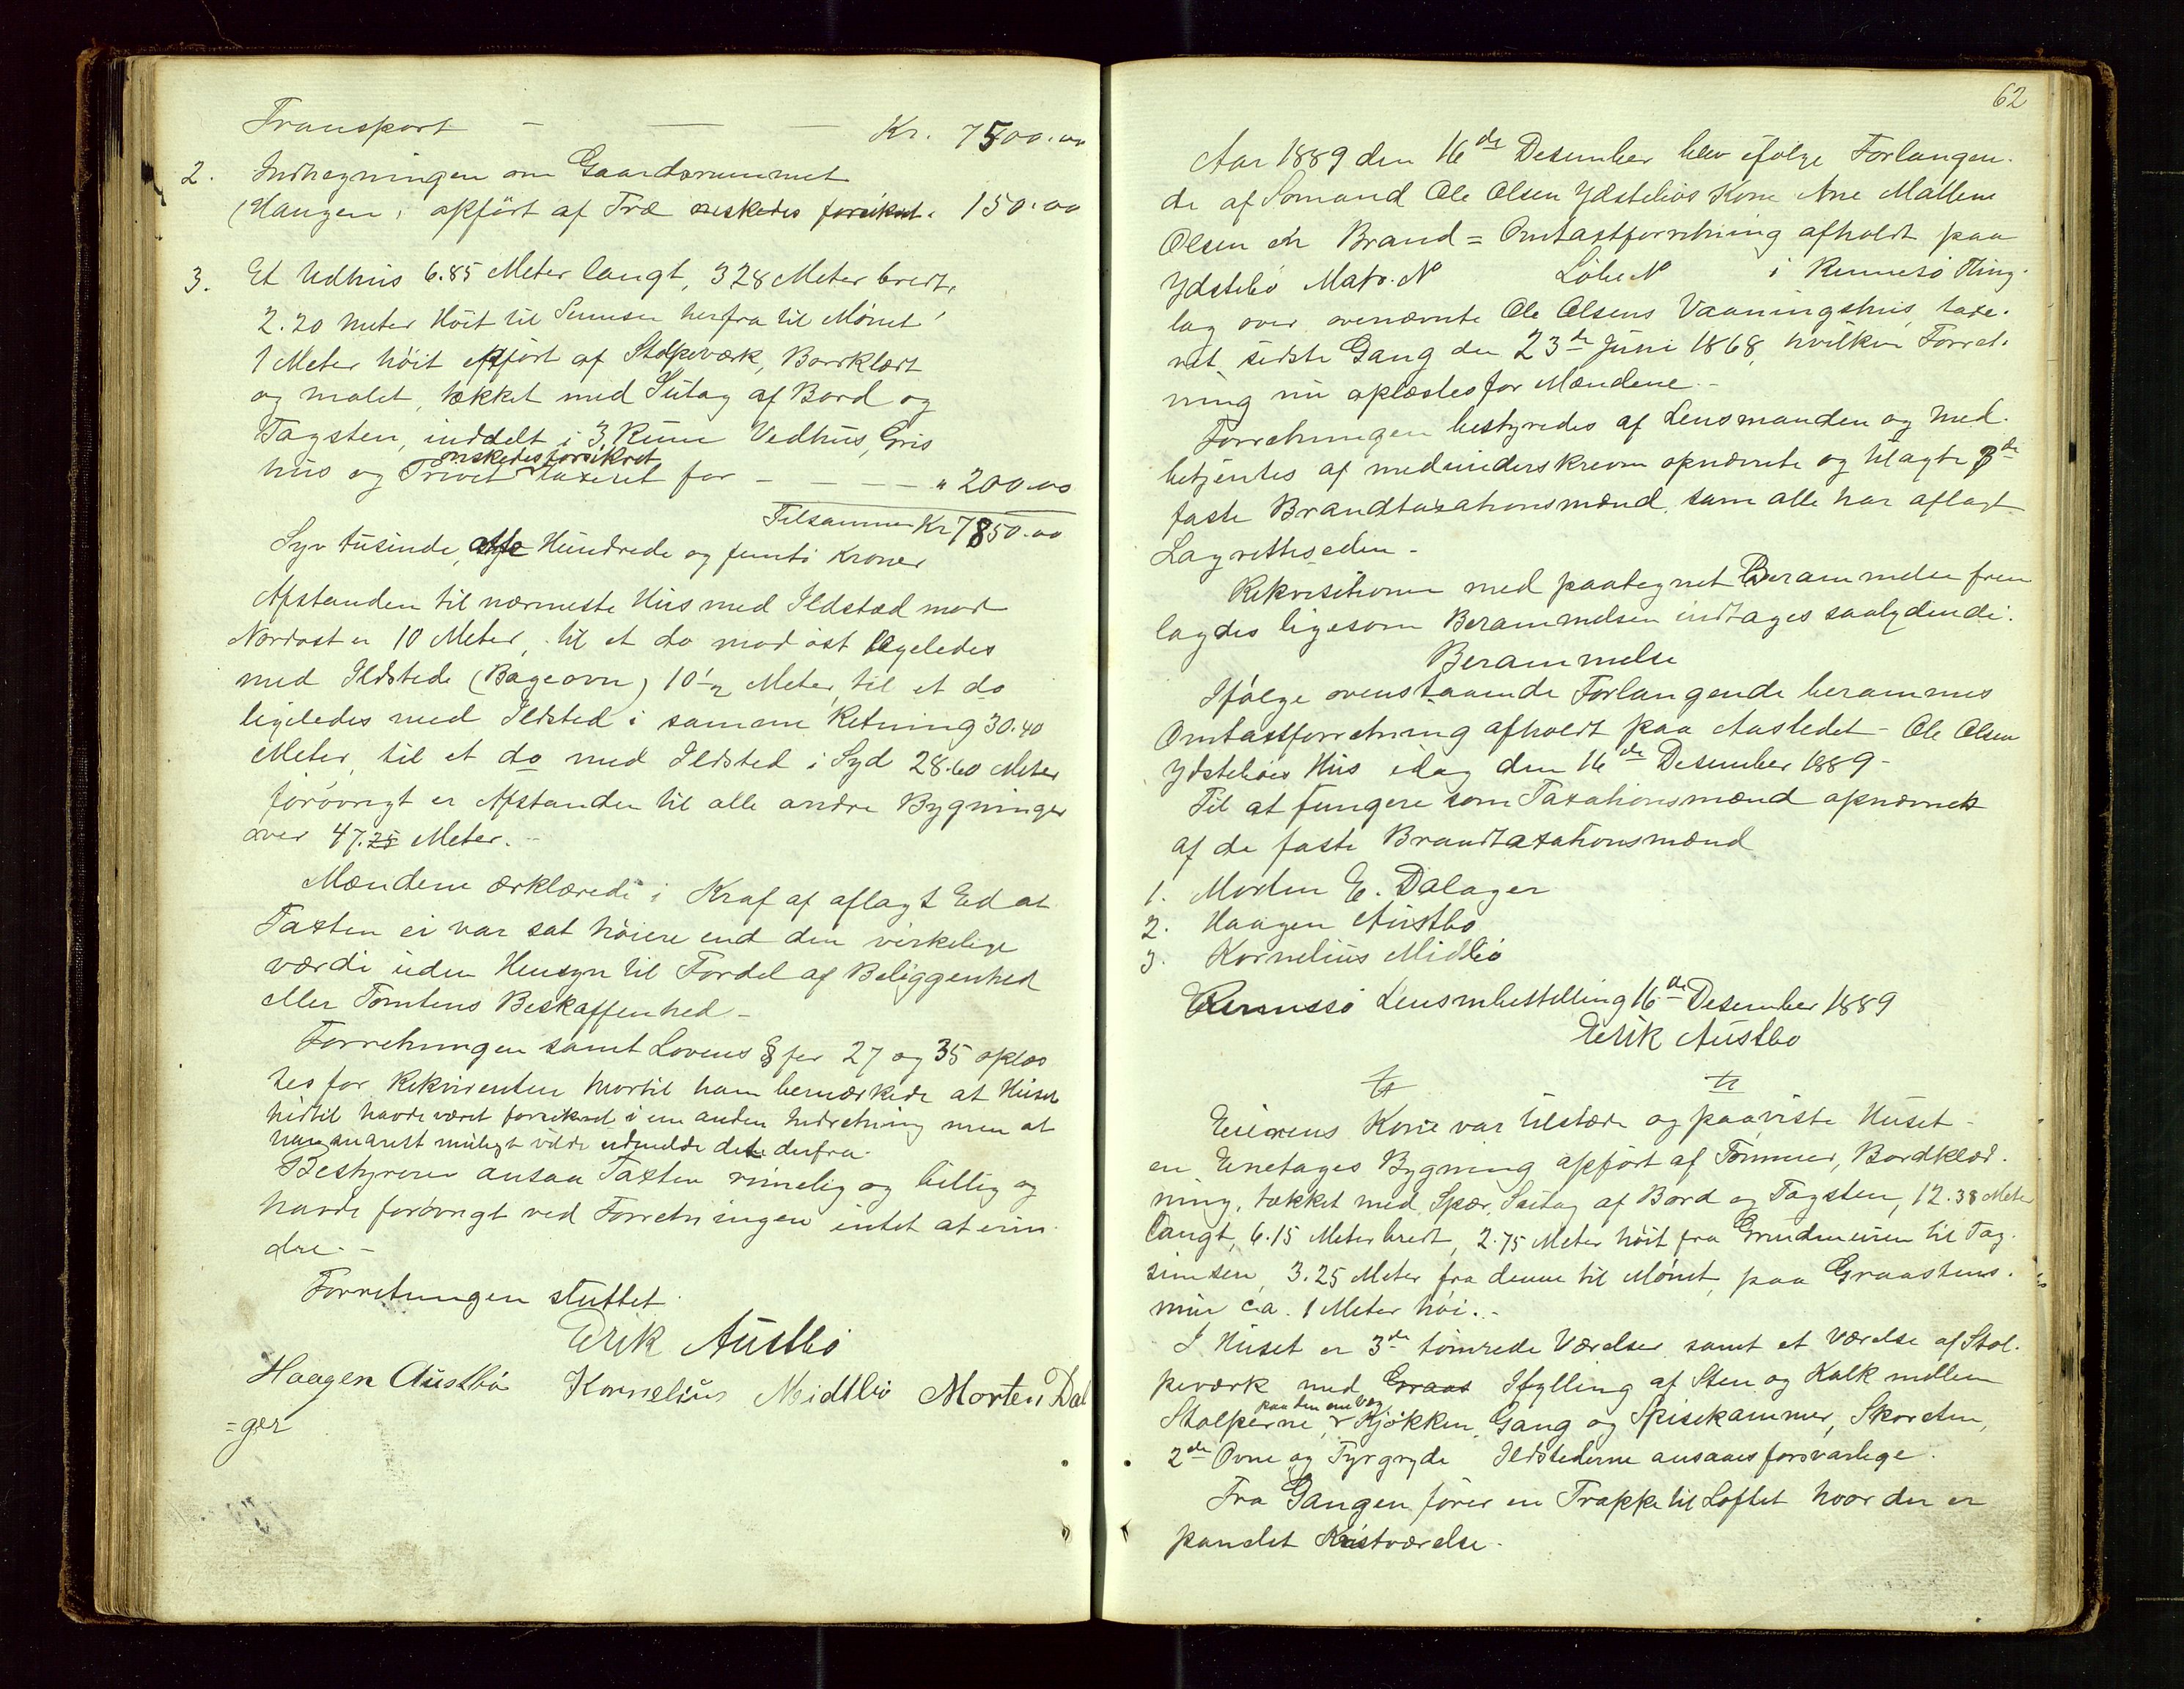 Transport - - - Kr. 7500.00
2. Indhegningen om Gaardsrummet
(Haugen, opført af Træ ønskedes forsikret. 150.00
3. Et Udhus 6.85 Meter langt, 3 28 Meter bredt,
2.20 Meter Høit til Simsen herfra til Mønet
1 Meter høit opført af Stolpeværk, Bordklædt
og malet, tækket med Sutag af Bord og
Tagsten, inddelt i 3 Rum Vedhus, Gris
ønskedes forsikret
hus og Privet taxeret for - - - - " 200.00
Tilsammen Kr 7850.00
Syv tusinde, otte Hundrede og femti Kroner
Afstanden til nærmeste Hus med Ildsted mod
Nordost er 10 Meter, til et do mod øst ligeledes
med Ildstede (Bageovn) 10 1/2 Meter, til et do
ligeledes med Ildsted i samme Retning 30.40
Meter, til et do med Ildsted i Syd 28.60 Meter
forøvrigt er Afstanden til alle andre Bygninger
over 47.25 Meter. -
Mændene erklærede i Kraf af aflagt Ed at
Taxten ei var sat høiere end den virkelige
værdi uden Hensyn til Fordel af Beliggenhed
eller Tomtens Beskaffenhed -
Forretningen samt Lovens § fer 27 og 35 oplæs
tes for Rekvirenten hvortil han bemærkede at Huset
hidtil havde været forsikret i en anden Indretning men at
han snarest muligt vilde udmelde dette derfra.
Bestyreren ansaa Taxten rimelig og billig og
havde forøvrigt ved Forretningen intet at erin
dre. -
Forretningen sluttet.
Erik Austbø
Haagen Austbø Kornelius Midtbø Morten Dal
=ger
62
Aar 1889 den 16de Desember blev ifølge Forlangen.
de af Sømand Ole Olsen Ydstebøs Kone Ane Mallene
Olsen en Brand=Omtaxtforretning afholdt paa
Ydstebø Matr. No Løbe No i Rennesø Thing.
lag over ovenævnte Ole Olsens Vaaningshus, taxe.
ret sidste Gang den 23de Juni 1868, hvilken Forret.
ning nu oplæstes for Mændene. -
Forretningen bestyredes af Lensmanden og med.
betjentes af medunderskrevne opnævnte og tilagte 3de
faste Brandtaxationsmænd som alle har aflagt
Lagretteseden -
Rekvisitionen med paategnet Berammelse frem
lagdes ligesom Berammelsen indtages saalydende:
Berammelse
Ifølge ovenstaaende Forlangende berammes
Omtaxtforretning afholdt paa Aastedet - Ole Olsen
Ydstebøes Hus idag den 16de Desember 1889 -
Til at fungere som Taxationsmænd opnævnes
af de faste Brandtaxationsmænd
1. Morten E. Dalager
2. Haagen Austbø
3. Kornelius Midtbø
Rennesø Lensmbestilling 16de Desember 1889
Erik Austbø
Eierens Kone var tilstæde og paaviste Huset -
en Enetages Bygning opført af Tømmer, Bordklæd.
ning, tækket med Spær, Sutag af Bord og Tagsten, 12.38 Meter
langt, 6.15 Meter bredt, 2.75 Meter høit fra Grundmuren til Tag.
simsen, 3.25 Meter fra denne til Mønet, paa Graastens.
mur ca. 1 Meter høi. -
I Huset er 3de tømrede Værelser samt et Værelse af Stol.
peværk med Graas Ifylling af Sten og Kalk mellem
paa den ene Væg
Stolperne, Kjøkken, Gang og Spisekammer, Skorsten,
2de Ovne og Fyrgryde Ildstederne ansaaes forsvarlige.
Fra Gangen fører en Trappe til Loftet hvor der er
panelet Kvistværelse.